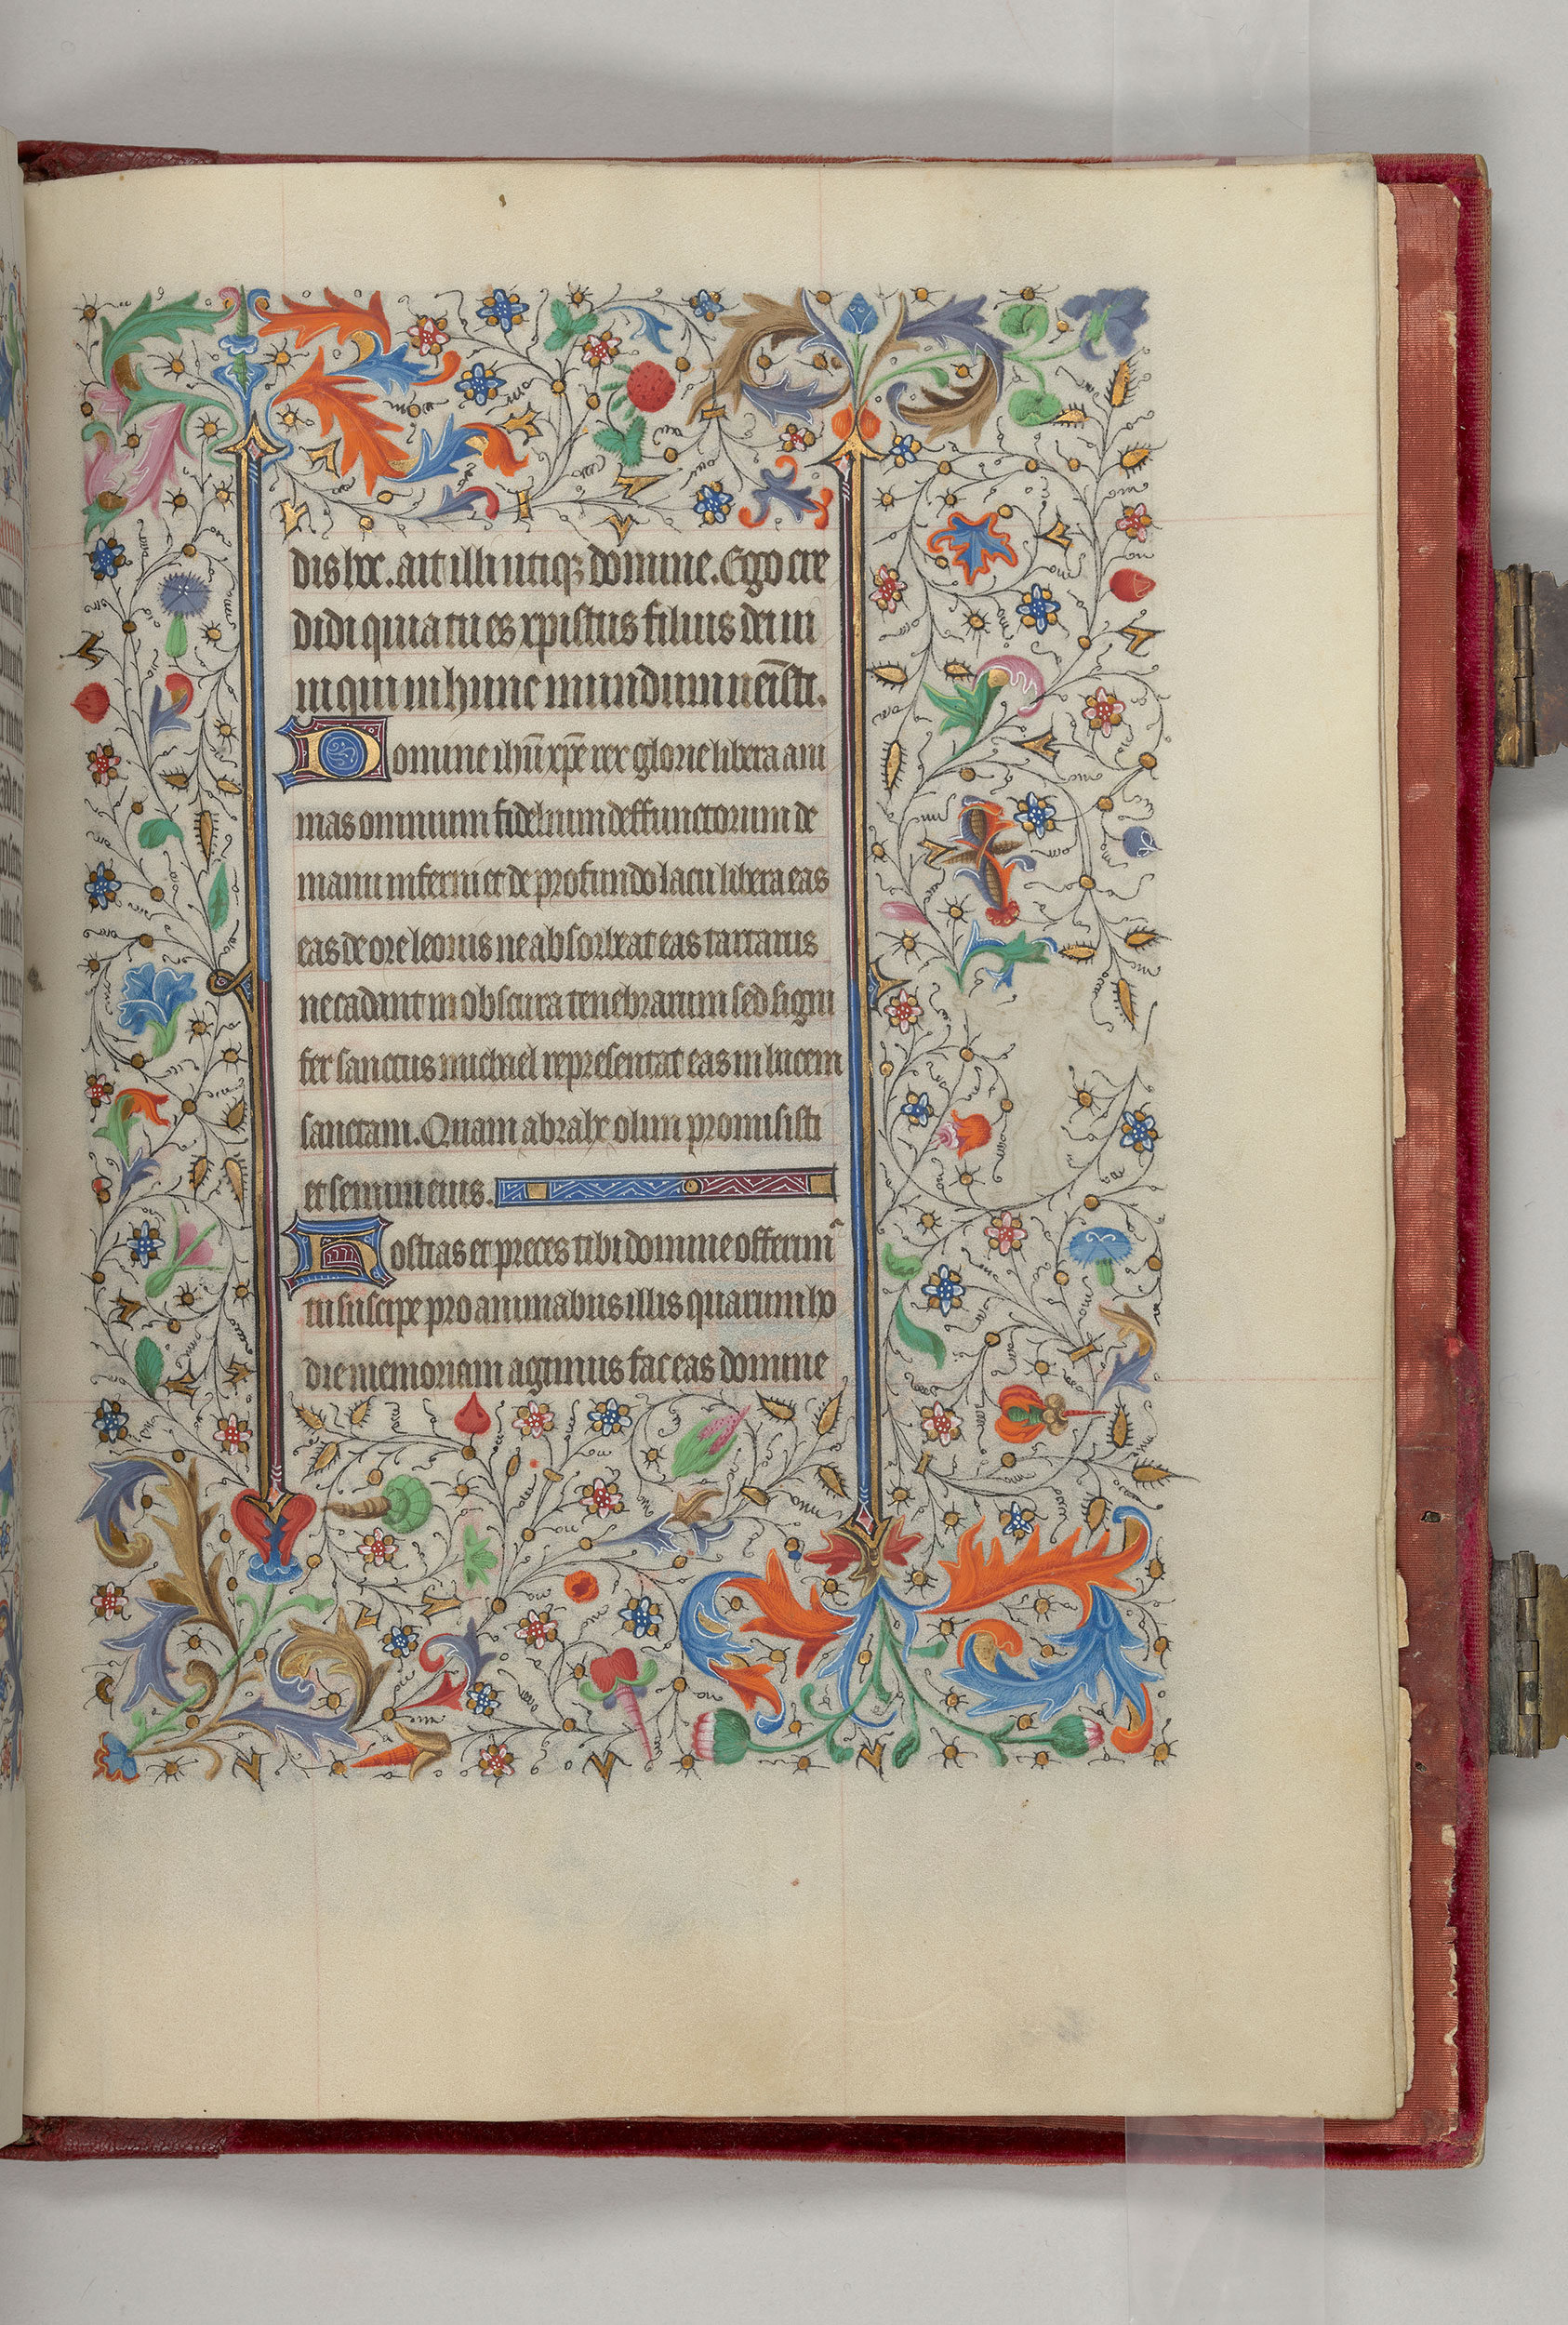 dis hoc. ait illi utiqꝫ domine. Ego cre
didi quia tu es xpistus filius dei ui
ui qui in hunc mundum ueisti.
Domine ihū xpē rex glorie libera ani
mas omnium fidelium deffunctorum de
manu inferni et de profundo lacu libera eas
eas de ore leonis ne absorbeat eas tartarus
ne cadant in obscura tenebrarum sed signi
fer sanctus michael representat eas in lucem
sanctam. Quam abrahe olim promisisti
et semini eius.
Hostias et preces tibi domine offerim᷒
tu suscipe pro animabus illis quarum ho
die memoriam agimus fac eas domine